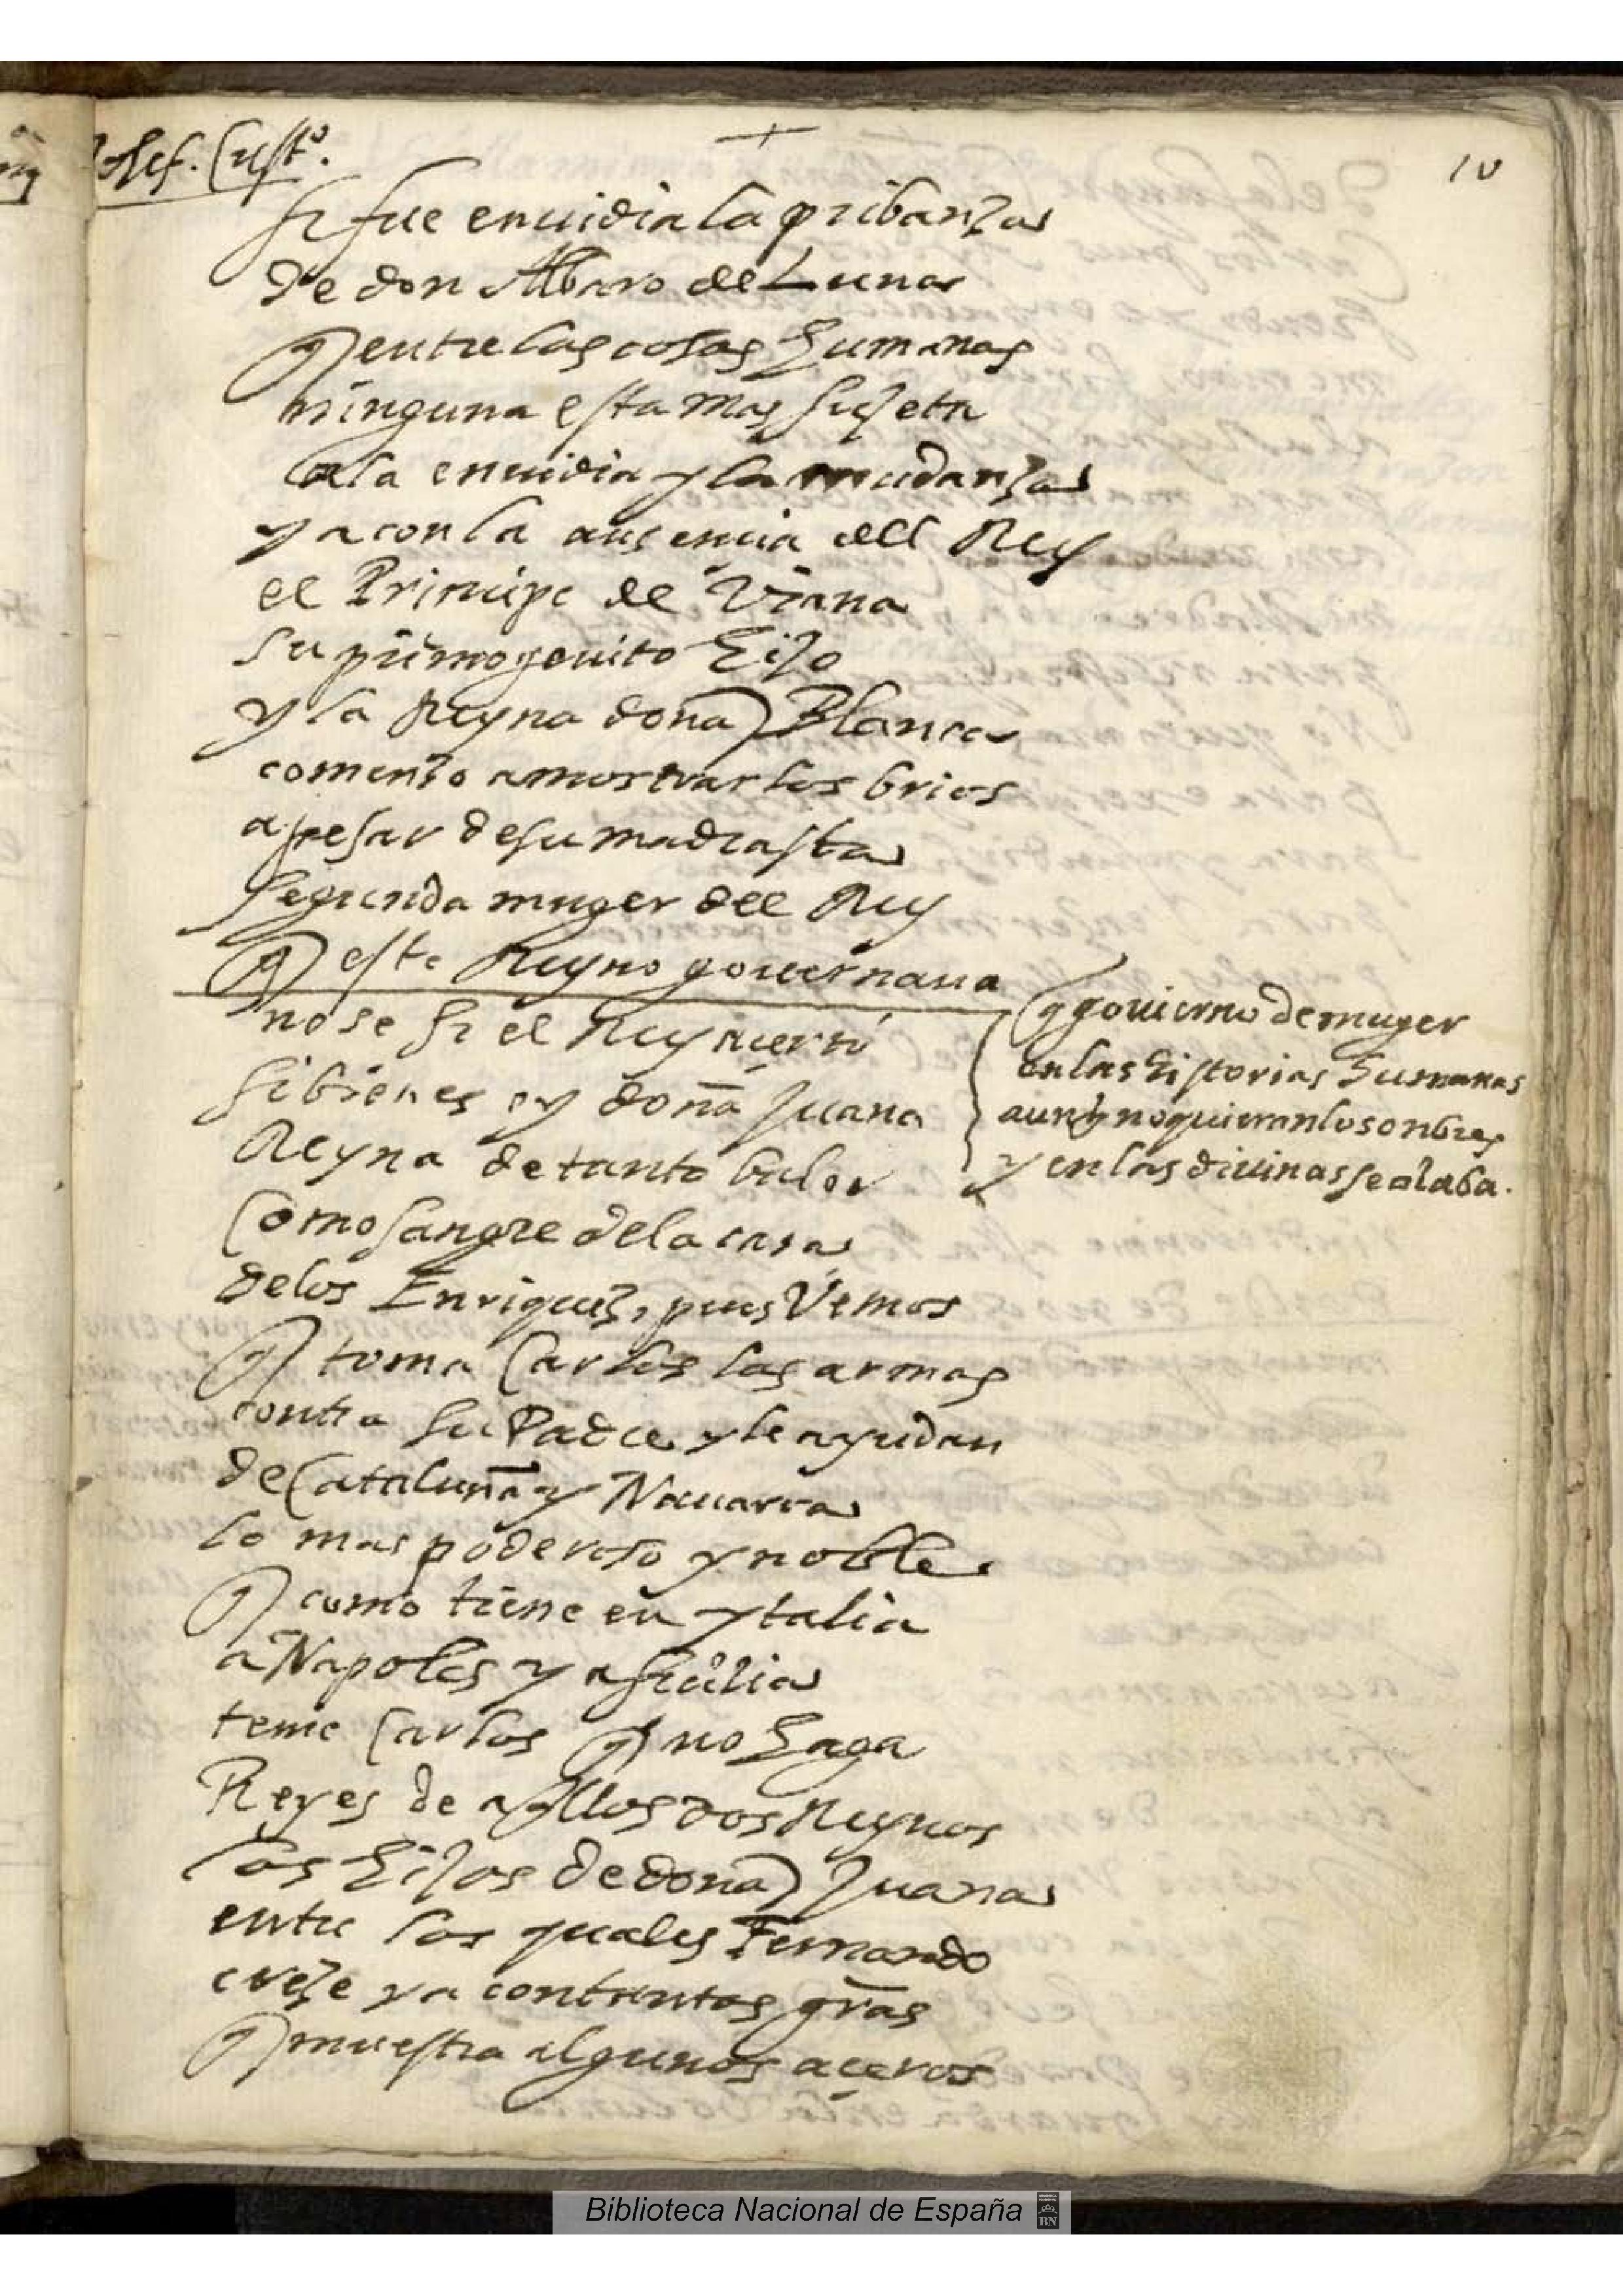 10
si fue envidia la pribanza
de don Albaro de Luna
q entre las cosas humanas
ninguna esta mas sujeta
a la envidia y la mudanza
ya con la ausencia del Rey
el Principe de Viana
su primogenito hijo
y la Reyna doña Blanca
comenzo a mostrar los brios
a pesar de su madrasta
segunda muger del Rey
q este Reyno governaua
no se si el Rey acertó
si bien es oy doña Juana
Reyna de tanto balor
como sangre de la casa
de los Enriquez, pues Vemos
q toma Carlos las armas
contra su Padre y le ayudan
de Cataluña y Nauarra
lo mas poderoso y noble
q como tiene en ytalia
a Napoles y a sicilia
teme Carlos q no haga
Reyes de aqllos dos Reynos
los hijos de doña Juana
entre los quales Fernando
creze ya con tantas gras
q muestra algunos açeros
q govierno de muger
en las historias humanas
aunq no quieran los onbres
y en las divinas se alaba.
Biblioteca Nacional de España
BN